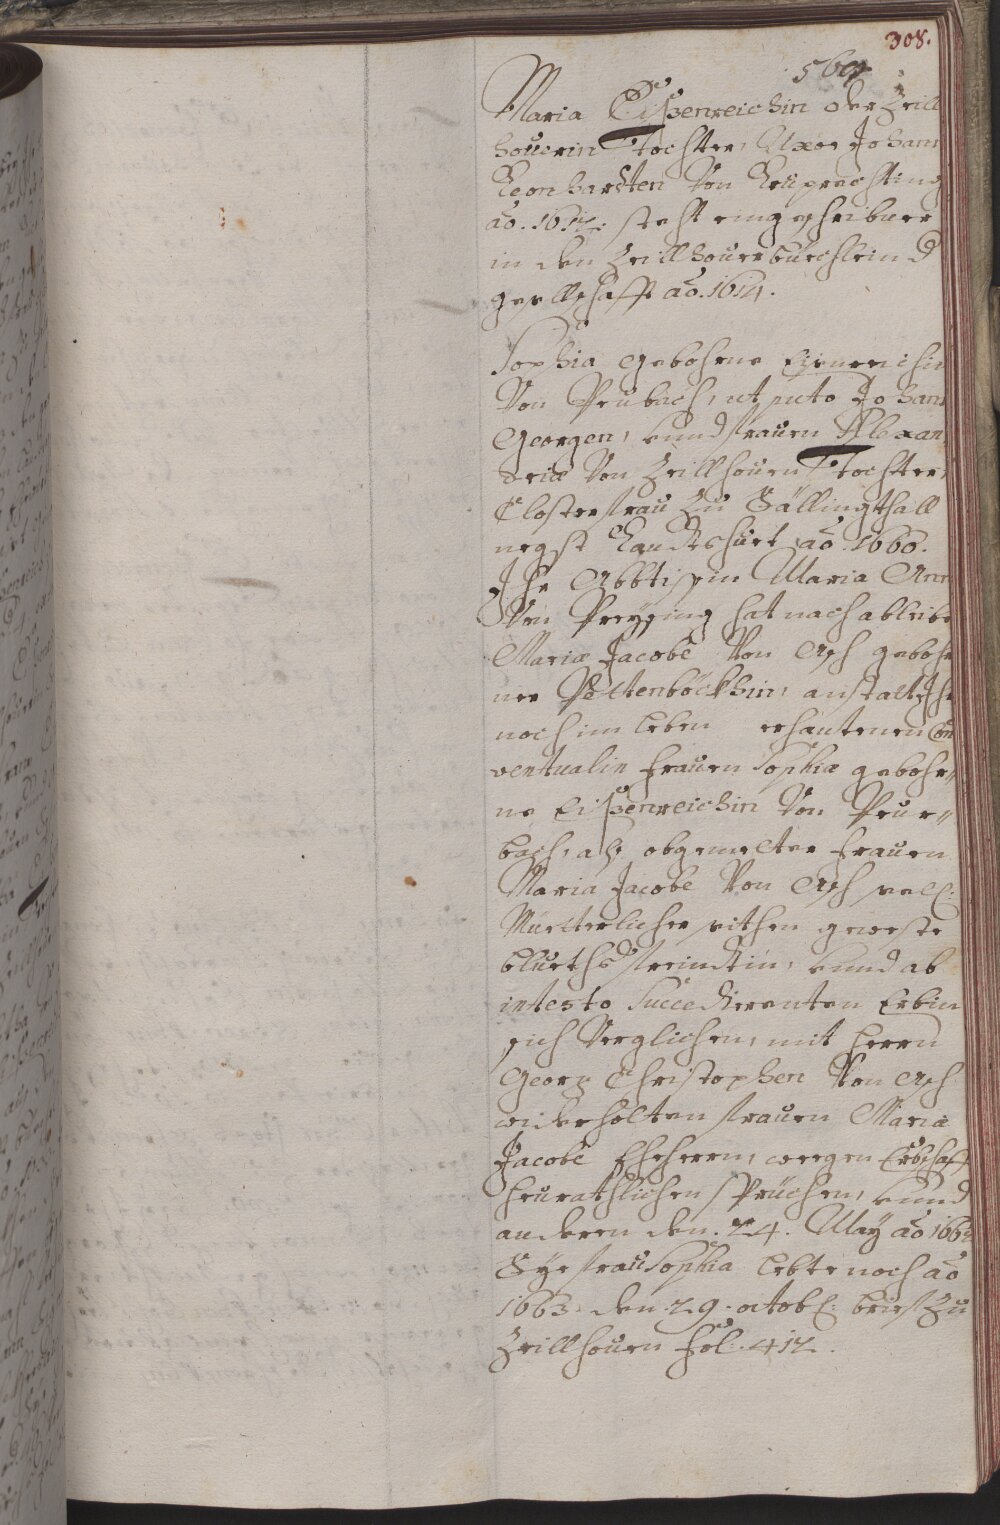 308.
569
Maria Eißenreichin oder Zeill
hoverin Tochter, Uxor Johann
Leonhardten Von Leüprechting
aõ. 1612. steht eingeschribner
in den Zeillhover büechlein d
gesellschafft aõ. 1614.
Sophia gebohrne Eisenreichin
Von Peubach, ut puto Johann
Georgen, unnd frauen Alexan
driæ Von Zeillhoven Tochter,
Closterfrau zu Sällingthall
negst Landtshuet aõ. 1660.
Ihr Abbtißin Maria Ann
Von Preysing hat nach ableibe
Mariæ Jacobe Von Asch gebohr
ner Pöttenböckhin, anstatt Ihr
noch im leben erhantenen Con
ventualin frauen Sophiæ gebohr„
ne Eißenreichin Von Peur„
bach, als obgemelter frauen
Maria Jacobe Von Asch seel:
Müetterlicher seithen geweste
bluethsfreindtin, unnd ab
intesto Succedirenten Erbin
sich Verglichen, mit herrn
Georg Christophen Von Asch
widerholten frauen Maria
Jacobe Eheherrn, weegen Erbschaft
heurathlichen sprüchen, unnd
anderen den. 24. May aõ 166
Sye frau Sophia lebte noch aõ
1663. den. 29. octob: brief zu
Zeillhoven fol. 412.